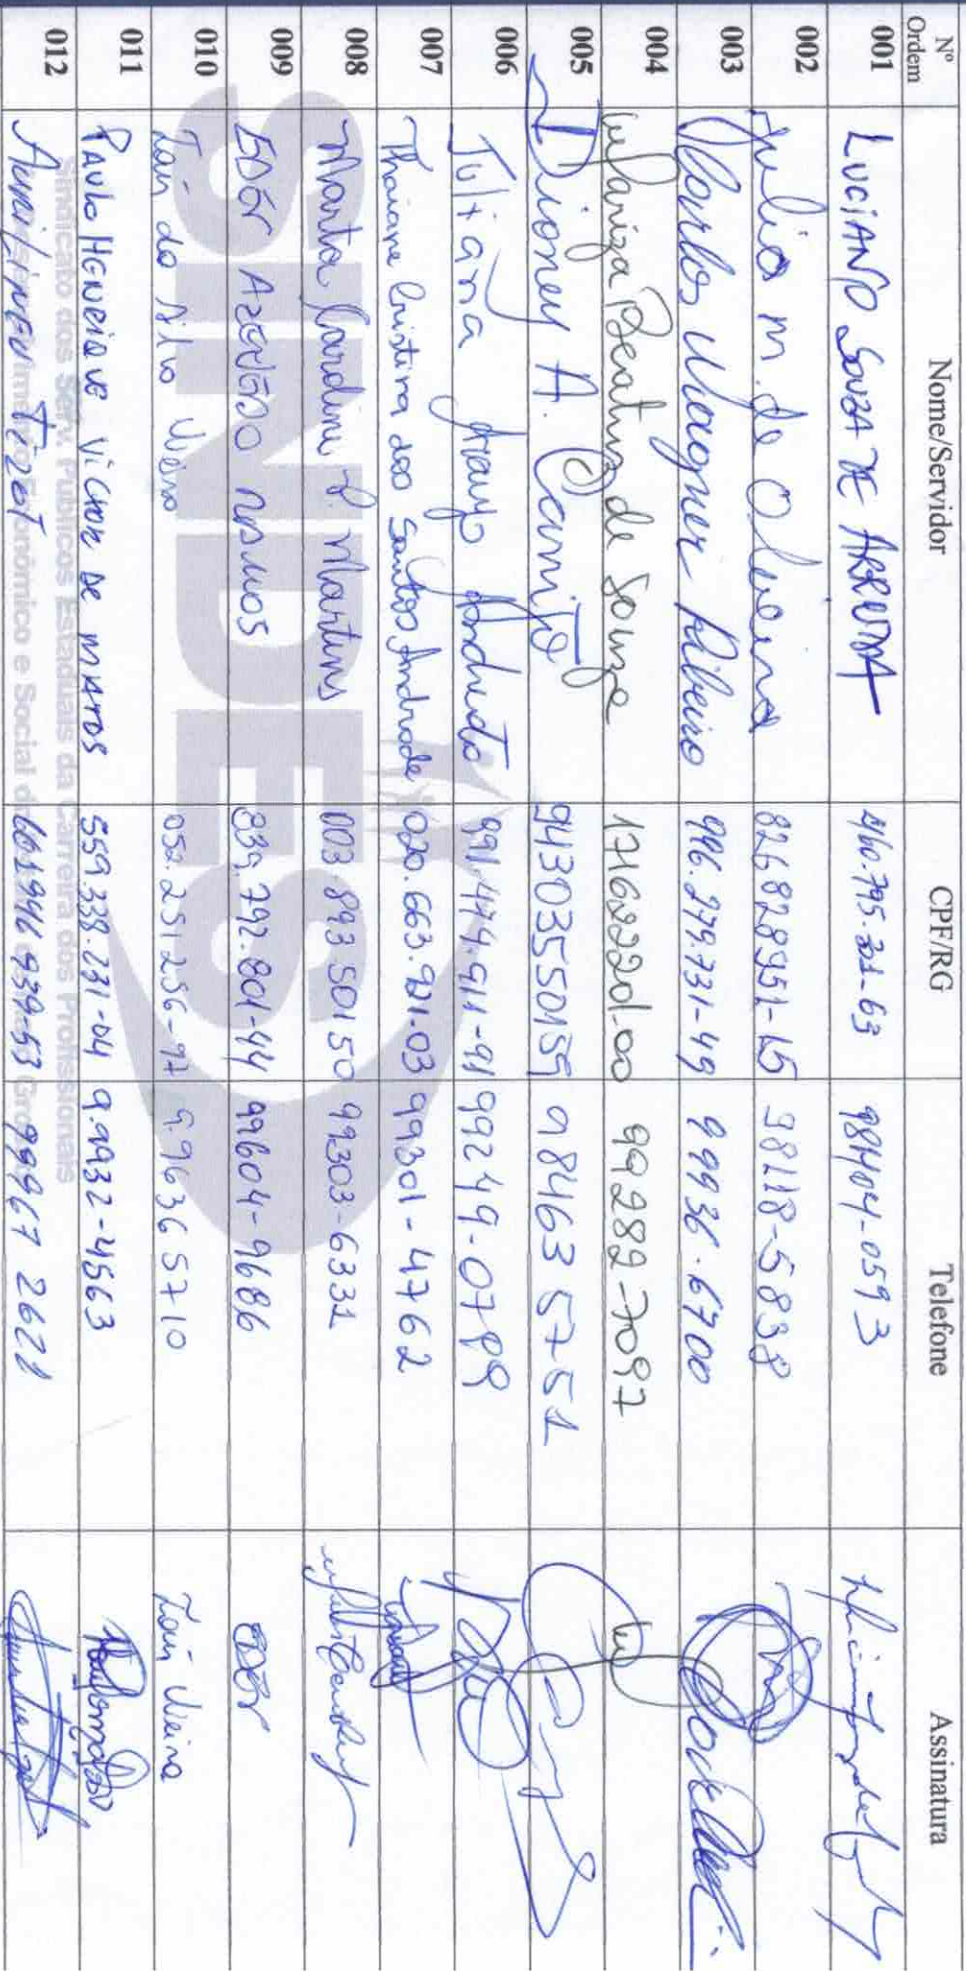 Nº Ordem Nome/Servidor CPF/RG Telefone Assinatura
001 LUCIANO SOUZA DE ARRUDA 98404-0593
002 Julio m. de Oliveira 38118-5838
003 Marlos Wagner Ribeiro 996.279.731-49 99936.6700
004 Mariza Beatriz de Souza 99282-7097
005 Dioney A. Campos 943035550159 98463 5751
006 Juliana Araujo 991.474.911-91 99249-0789
007 Thaiane Cristina dos Santos Andrade 020.663.921.03 99301-4762
008 Marta Cardini P. Martins 003.893 501 50 99303-6331
009 EDER AZEVEDO RAMOS 839.792.801-44 99604-9686 EDER
010 da Silva Vieira 052.251.256-97 9.9636 5710 Vieira
011 PAULO HENRIQUE VILHON DE MATOS 559.338.231-04 9.9932-4563
012 TIZOT 99967 2621
SINDES
Sindicato dos Serv. Públicos Estaduais da Carreira dos Profissionais
Econômico e Social